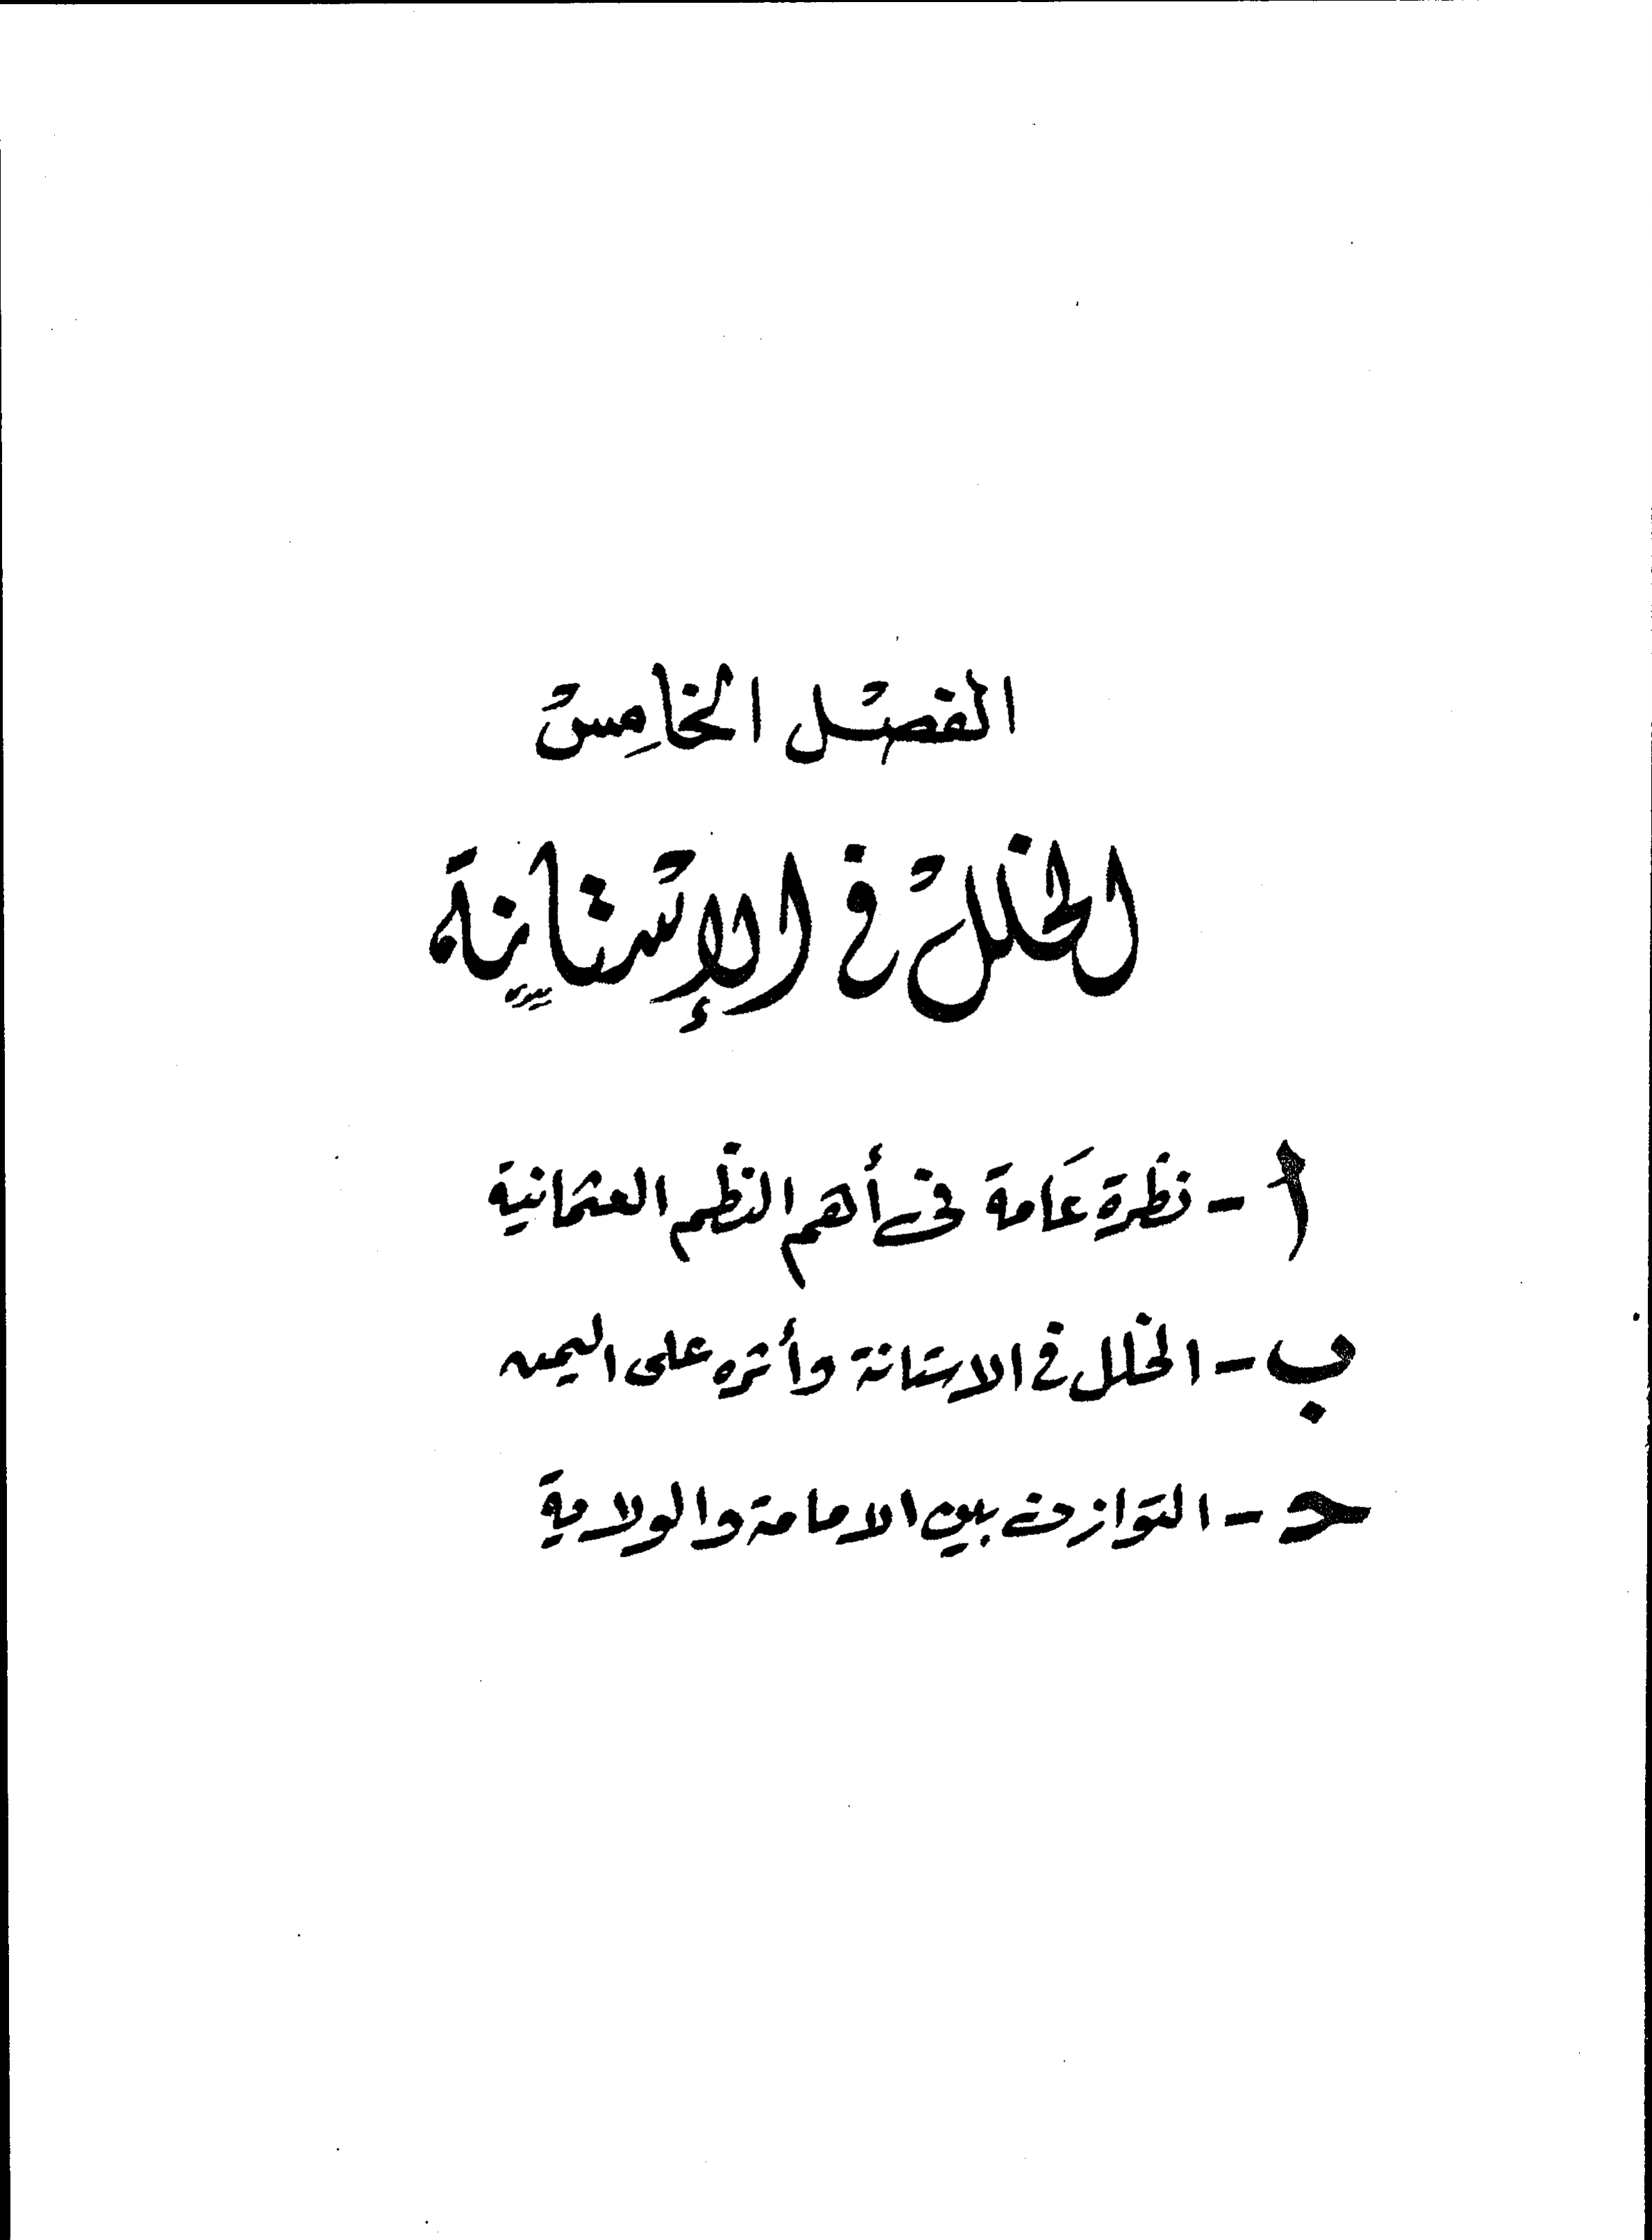 الفصل الخامس
الخلل في الإستانة
أ - نظرة عامة في أهم النظم العثمانية
ب - الخلل في الاستانة وأثره على اليمن
ح - التوازن بين الامامة والولاية